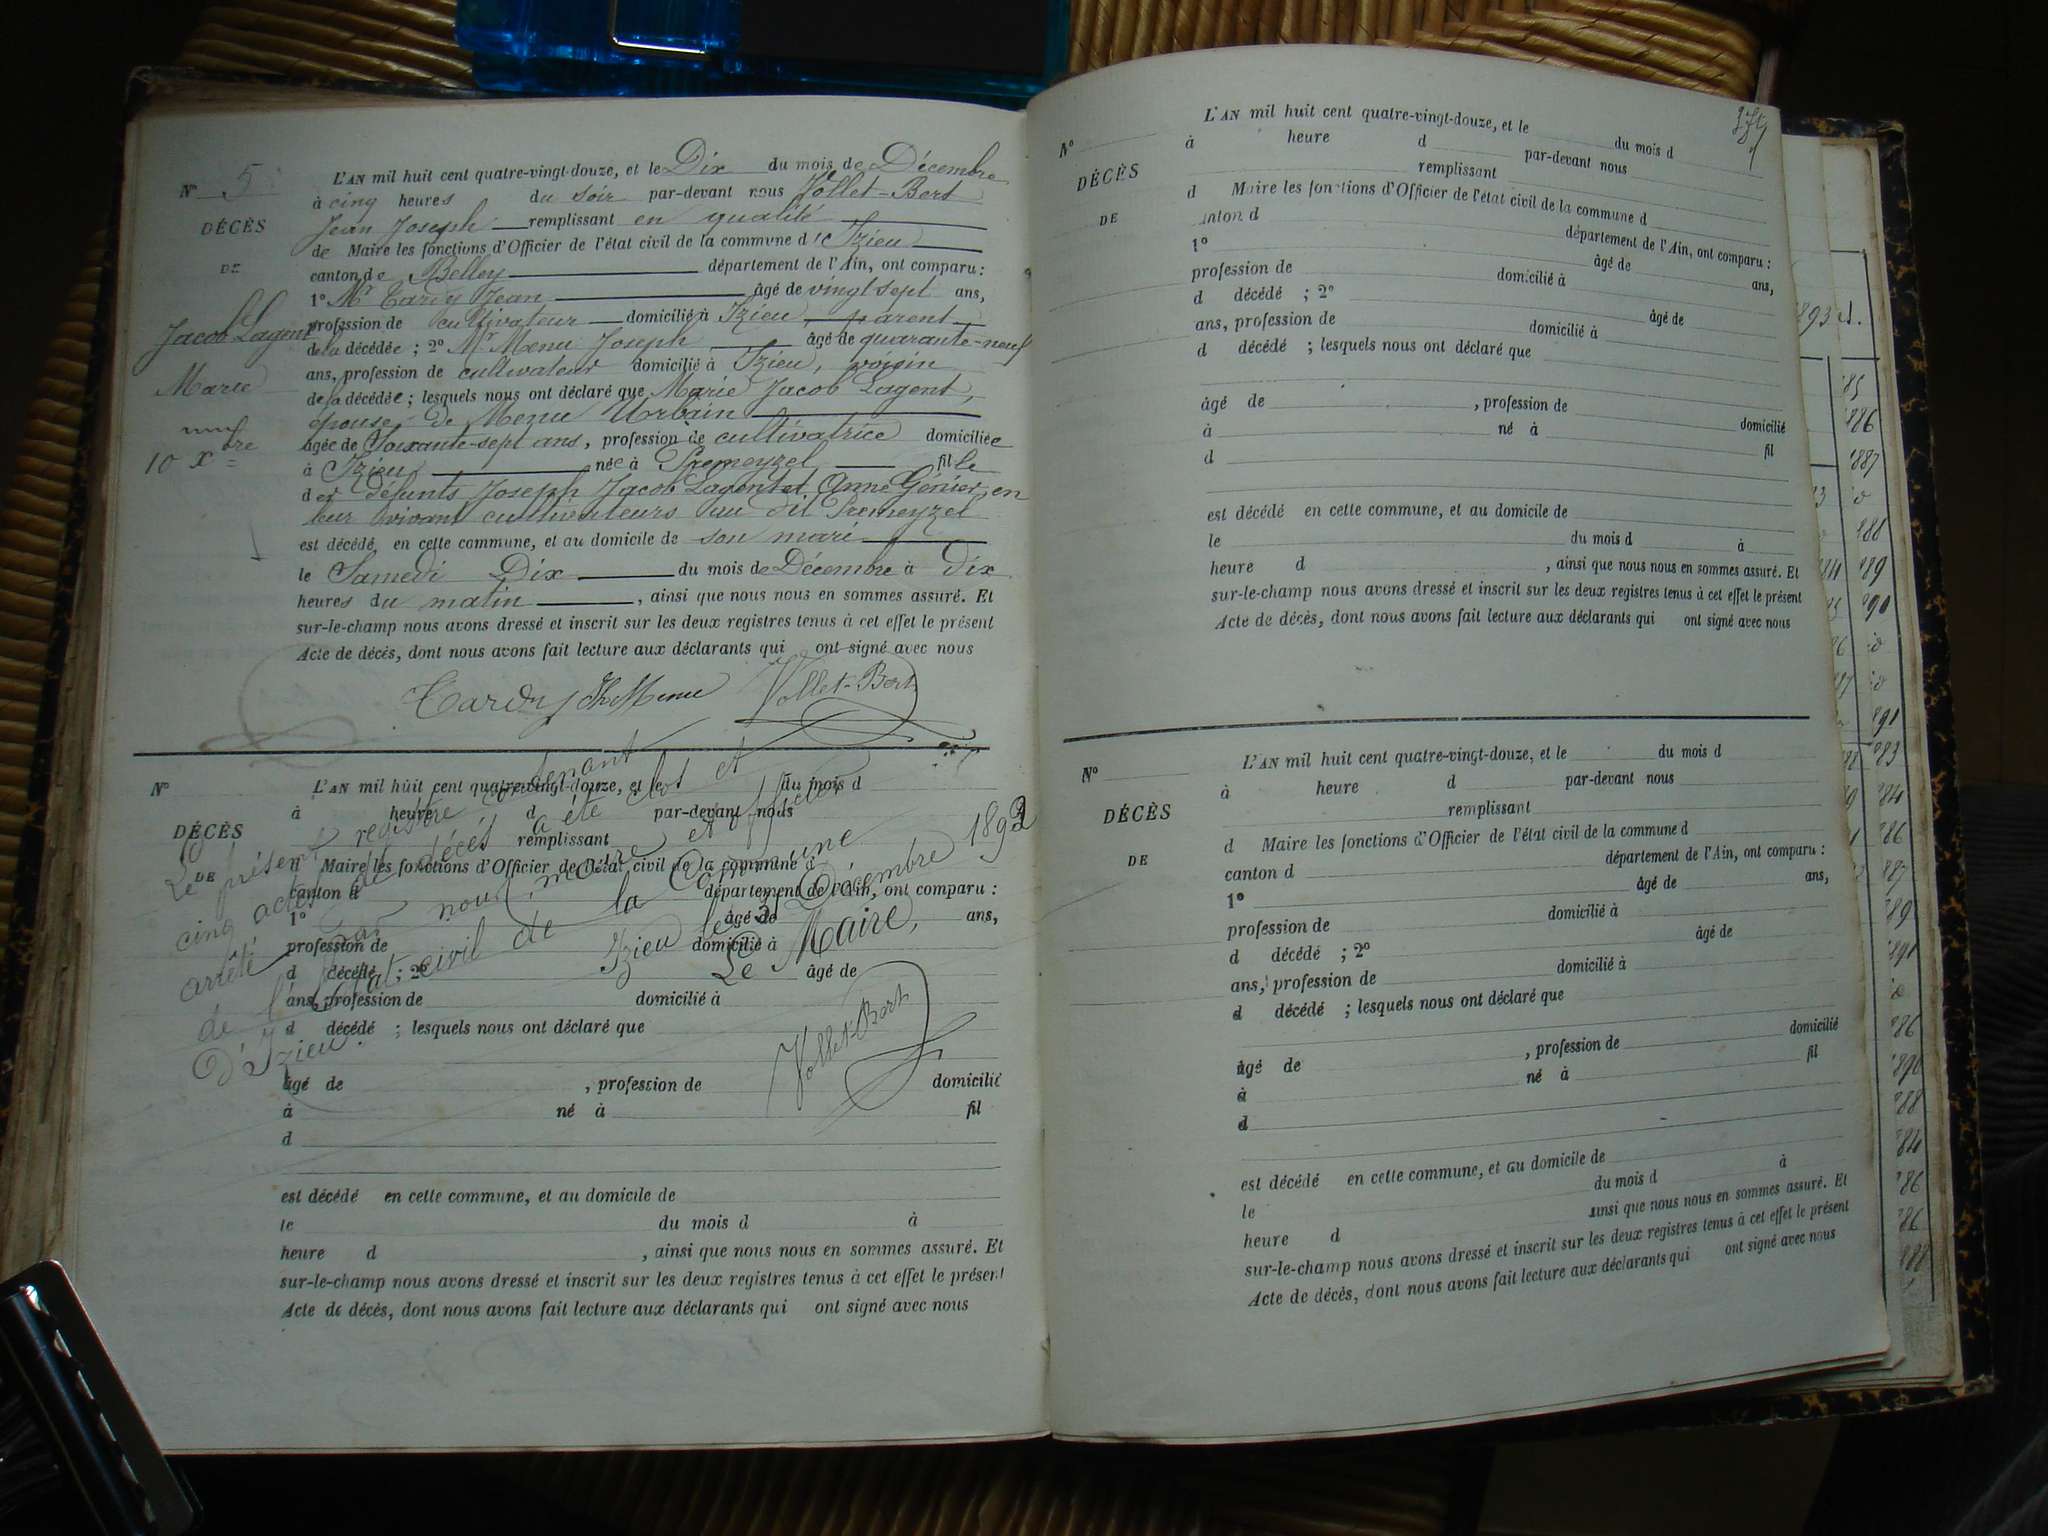 N° 5
DÉCÈS
DE
Jacob Lagent
Marie
10 Xbre
L'AN mil huit cent quatre-vingt-douze, et le Dix du mois de Décembre
à cinq heures du soir par-devant nous Vollet-Bert
Jean Joseph remplissant en qualité
de Maire les fonctions d'Officier de l'état civil de la commune d'Izieu
canton de Belley département de l'Ain, ont comparu :
1° Mr Tardy Jean âgé de vingt sept ans,
profession de cultivateur domicilié à Izieu parent
de la décédée ; 2° Mr Menu Joseph âgé de quarante-neuf
ans, profession de cultivateur domicilié à Izieu, voisin
de la décédée ; lesquels nous ont déclaré que Marie Jacob Lagent,
épouse de Menu Urbain
âgée de Soixante-sept ans, profession de cultivatrice domiciliée
à Izieu née à Premeyzel fille
des défunts Joseph Jacob Lagent et Anne Génier en
leur vivant cultivateurs au dit Premeyzel
est décédé en cette commune, et au domicile de son mari
le Samedi Dix du mois de Décembre à Dix
heures du matin, ainsi que nous nous en sommes assuré. Et
sur-le-champ nous avons dressé et inscrit sur les deux registres tenus à cet effet le présent
Acte de décès, dont nous avons fait lecture aux déclarants qui ont signé avec nous
Tardy Jh Menu Vollet-Bert
N°
DÉCÈS
DE
L'AN mil huit cent quatre-vingt-douze, et le du mois d
à heure d par-devant nous
remplissant
d Maire les fonctions d'Officier de l'état civil de la commune d
canton d département de l'Ain, ont comparu :
1° âgé de ans,
profession de domicilié à
d décédé ; 2° âgé de
ans, profession de domicilié à
d décédé ; lesquels nous ont déclaré que
âgé de , profession de domicilié
à né à fil
d
est décédé en cette commune, et au domicile de
le du mois d à
heure d , ainsi que nous nous en sommes assuré. Et
sur-le-champ nous avons dressé et inscrit sur les deux registres tenus à cet effet le présent
Acte de décès, dont nous avons fait lecture aux déclarants qui ont signé avec nous
Le présent registre contenant
cinq actes de décès a été clos et
arrêté par nous, maire et officier
de l'état civil de la Commune
d'Izieu.
Izieu le 31 Décembre 1892
Le Maire,
Vollet-Bert
N°
DÉCÈS
DE
L'AN mil huit cent quatre-vingt-douze, et le du mois d
à heure d par-devant nous
remplissant
d Maire les fonctions d'Officier de l'état civil de la commune d
anton d département de l'Ain, ont comparu :
1° âgé de ans,
profession de domicilié à
d décédé ; 2° âgé de
ans, profession de domicilié à
d décédé ; lesquels nous ont déclaré que
âgé de , profession de domicilié
à né à fil
d
est décédé en cette commune, et au domicile de
le du mois d à
heure d , ainsi que nous nous en sommes assuré. Et
sur-le-champ nous avons dressé et inscrit sur les deux registres tenus à cet effet le présent
Acte de décès, dont nous avons fait lecture aux déclarants qui ont signé avec nous
N°
DÉCÈS
DE
L'AN mil huit cent quatre-vingt-douze, et le du mois d
à heure d par-devant nous
remplissant
d Maire les fonctions d'Officier de l'état civil de la commune d
canton d département de l'Ain, ont comparu :
1° âgé de ans,
profession de domicilié à
d décédé ; 2° âgé de
ans, profession de domicilié à
d décédé ; lesquels nous ont déclaré que
âgé de , profession de domicilié
à né à fil
d
est décédé en cette commune, et au domicile de
le du mois d à
heure d ainsi que nous nous en sommes assuré. Et
sur-le-champ nous avons dressé et inscrit sur les deux registres tenus à cet effet le présent
Acte de décès, dont nous avons fait lecture aux déclarants qui ont signé avec nous